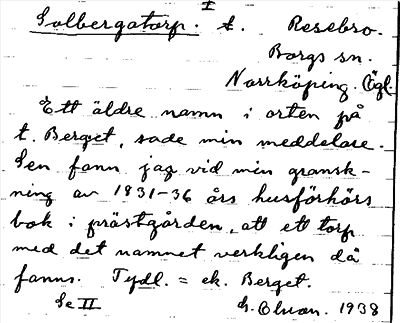 I
Solbergatorp. t. Resebro.
Borgs sn.
Norrköping. Ögl.
Ett äldre namn i orten på
t. Berget, sade min meddelare.
Sen fann jag vid min gransk-
ning av 1831-36 års husförhörs
bok i prästgården, att ett torp
med det namnet verkligen då
fanns. Tydl. = ek. Berget.
Se II
1938